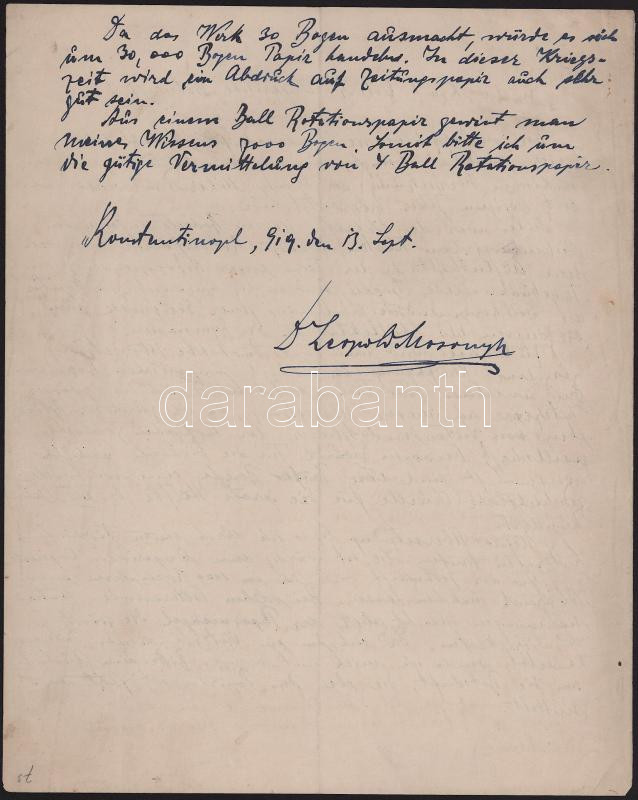 Da das Werk 30 Bogen ausmacht, würde es sich
um 30,000 Bogen Papir handeln. In dieser Kriegs-
zeit wird ein Abdruck auf Zeitungspapir auch sehr
gut sein.
Aus einem Ball Rotationspapir gewint man
meines Wissens 7000 Bogen. Somit bitte ich um
die gütige Vermittelung von 4 Ball Rotationspapir.
Konstantinopel, den 13. Sept.
Dr Leopold
darabanth